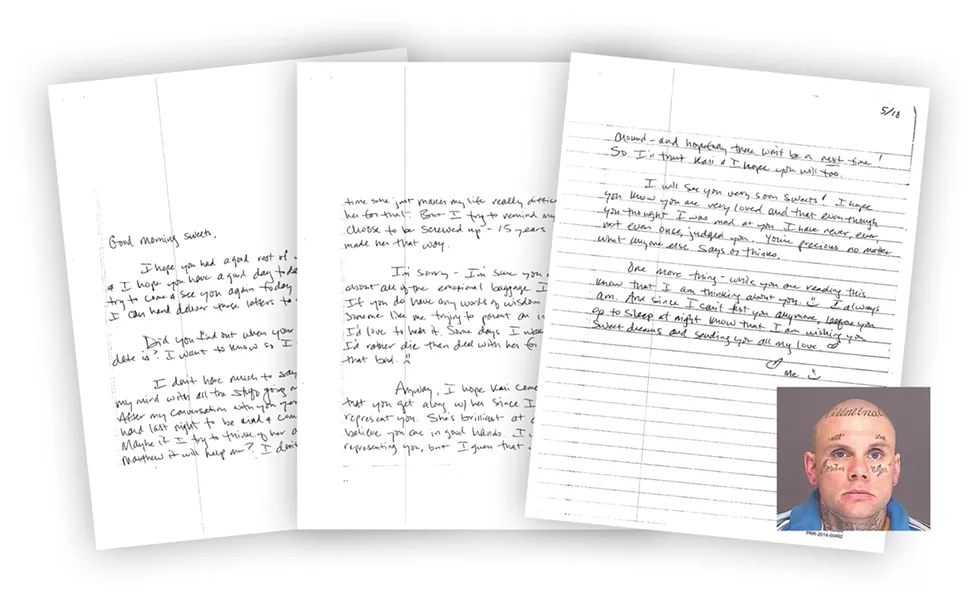 Good morning sweets,
I hope you had a good rest of
& I hope you have a good day toda
try to come & see you again today
I can hand deliver these letters to
Did you find out when your
date is? I want to know so I
I don't have much to say
my mind with all the stuff going
After my conversation with you
hard last night to be mad & cam
Maybe if I try to think of her a
Matthew it will help me? I don'
time she just makes my life really diffic
her for that. But I try to remind my
choose to be screwed up - 15 years
made her that way.
I'm sorry - I'm sure you
about all of the emotional baggage I
If you do have any words of wisdom
someone like me trying to parent an in
I'd love to hear it. Some days I
I'd rather die then deal with her fo
that bad.
Anyway, I hope Kaii came
that you get along w/her since I
represent you. She's brilliant at
believe you are in good hands. I
representing you, but I guess that
5/18
around - and hopefully there won't be a next time!
So I'll trust Kaii & I hope you will too.
I will see you very soon Sweets! I hope
you know you are very loved and that even though
you thought I was mad at you I have never, ever,
not even once, judged you. You're precious no matter
what anyone else says or thinks.
One more thing - while you are reading this
know that I am thinking about you. I always
am. And since I can't text you anymore, before you
go to sleep at night know that I am wishing you
sweet dreams and sending you all my love
Me
PRR-2014-00492